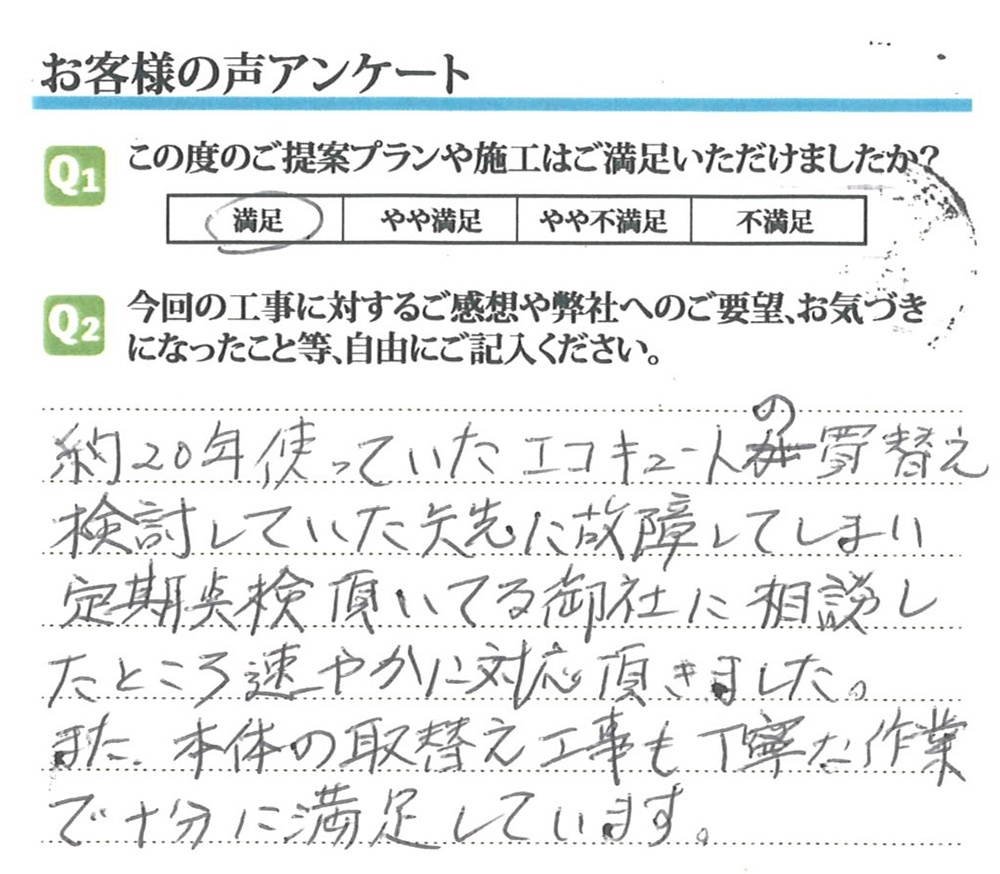 お客様の声アンケート
Q1 この度のご提案プランや施工はご満足いただけましたか?
満足 やや満足 やや不満足 不満足
Q2 今回の工事に対するご感想や弊社へのご要望、お気づき
になったこと等、自由にご記入ください。
約20年使っていたエコキュートの買替え
検討していた矢先に故障してしまい
定期点検頂いてる御社に相談し
たところ速やかに対応頂きました。
また、本体の取替え工事も丁寧な作業
で十分に満足しています。